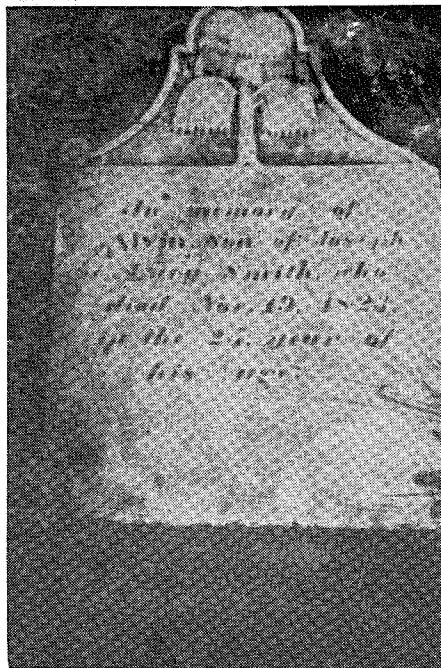 In memory of
Alvin, Son of Joseph
& Lucy Smith, who
died Nov. 19.
in the 25. year of
his age.